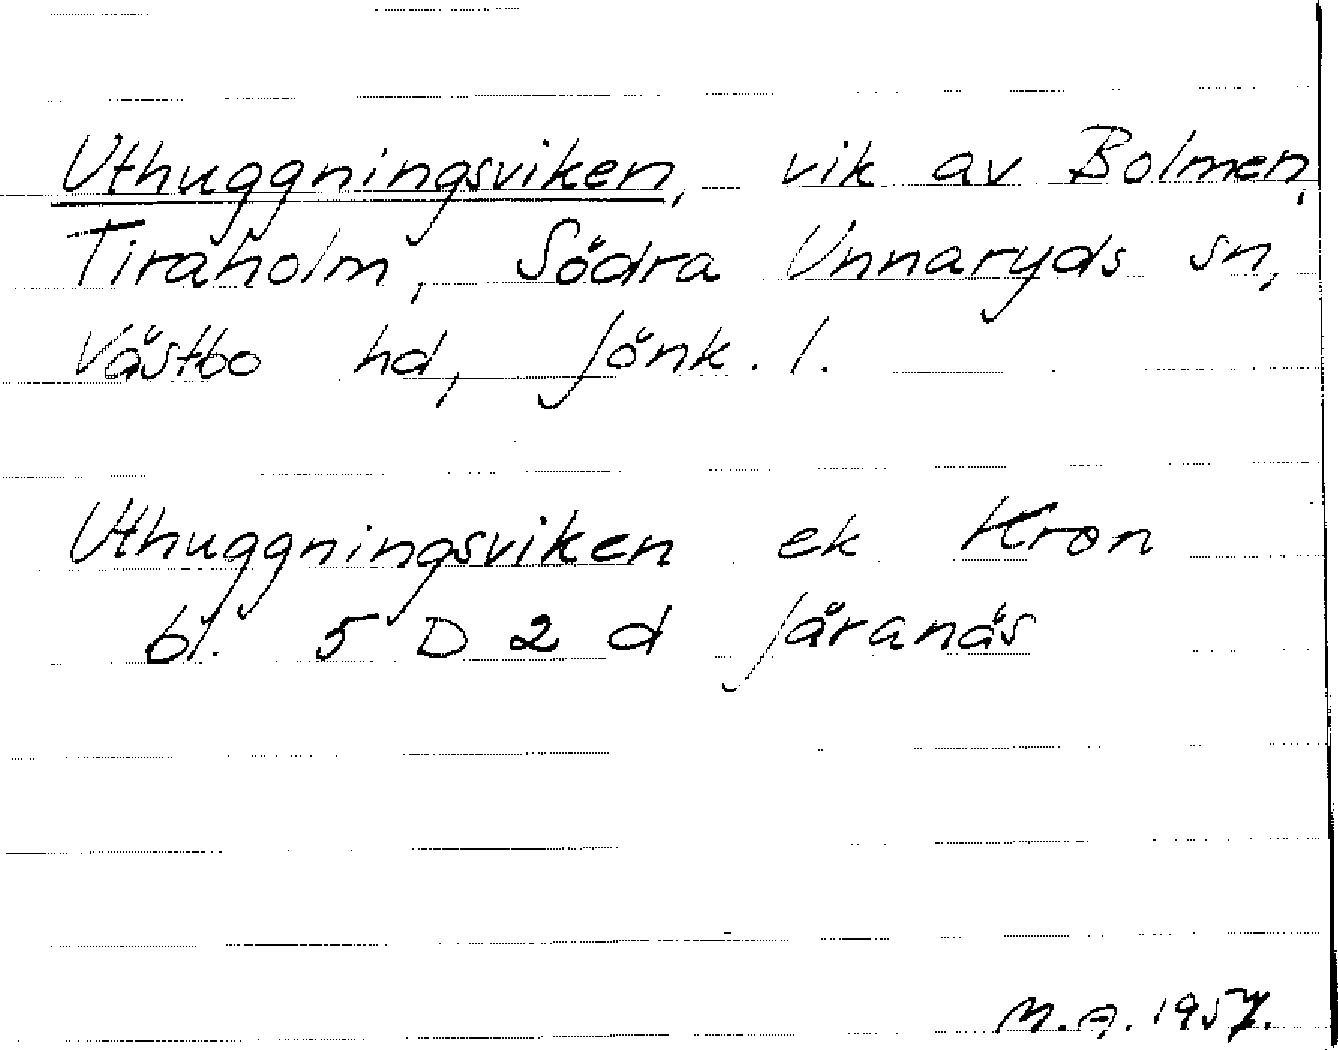 Uthuggningsviken, vik av Bolmen,
Tiraholm, Södra Unnaryds sn,
Västbo hd, Jönk. l.
Uthuggningsviken ek Kron
bl. 5 D 2 d Järanäs
M.A. 1957.